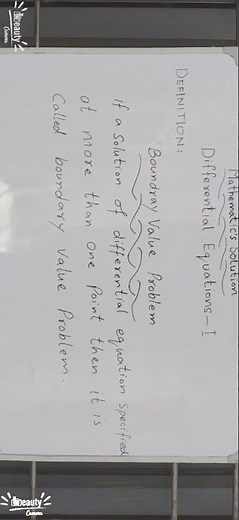 Mathematic's Solution
Differential Equations-I
DEFINITION:
Boundray Value Problem
If a Solution of differential equation specified
at more than one Point then it is
Called boundary Value Problem.
Beauty
Camera
Beauty
Camera